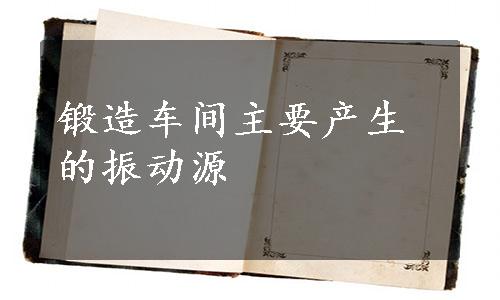 锻造车间主要产生
的振动源